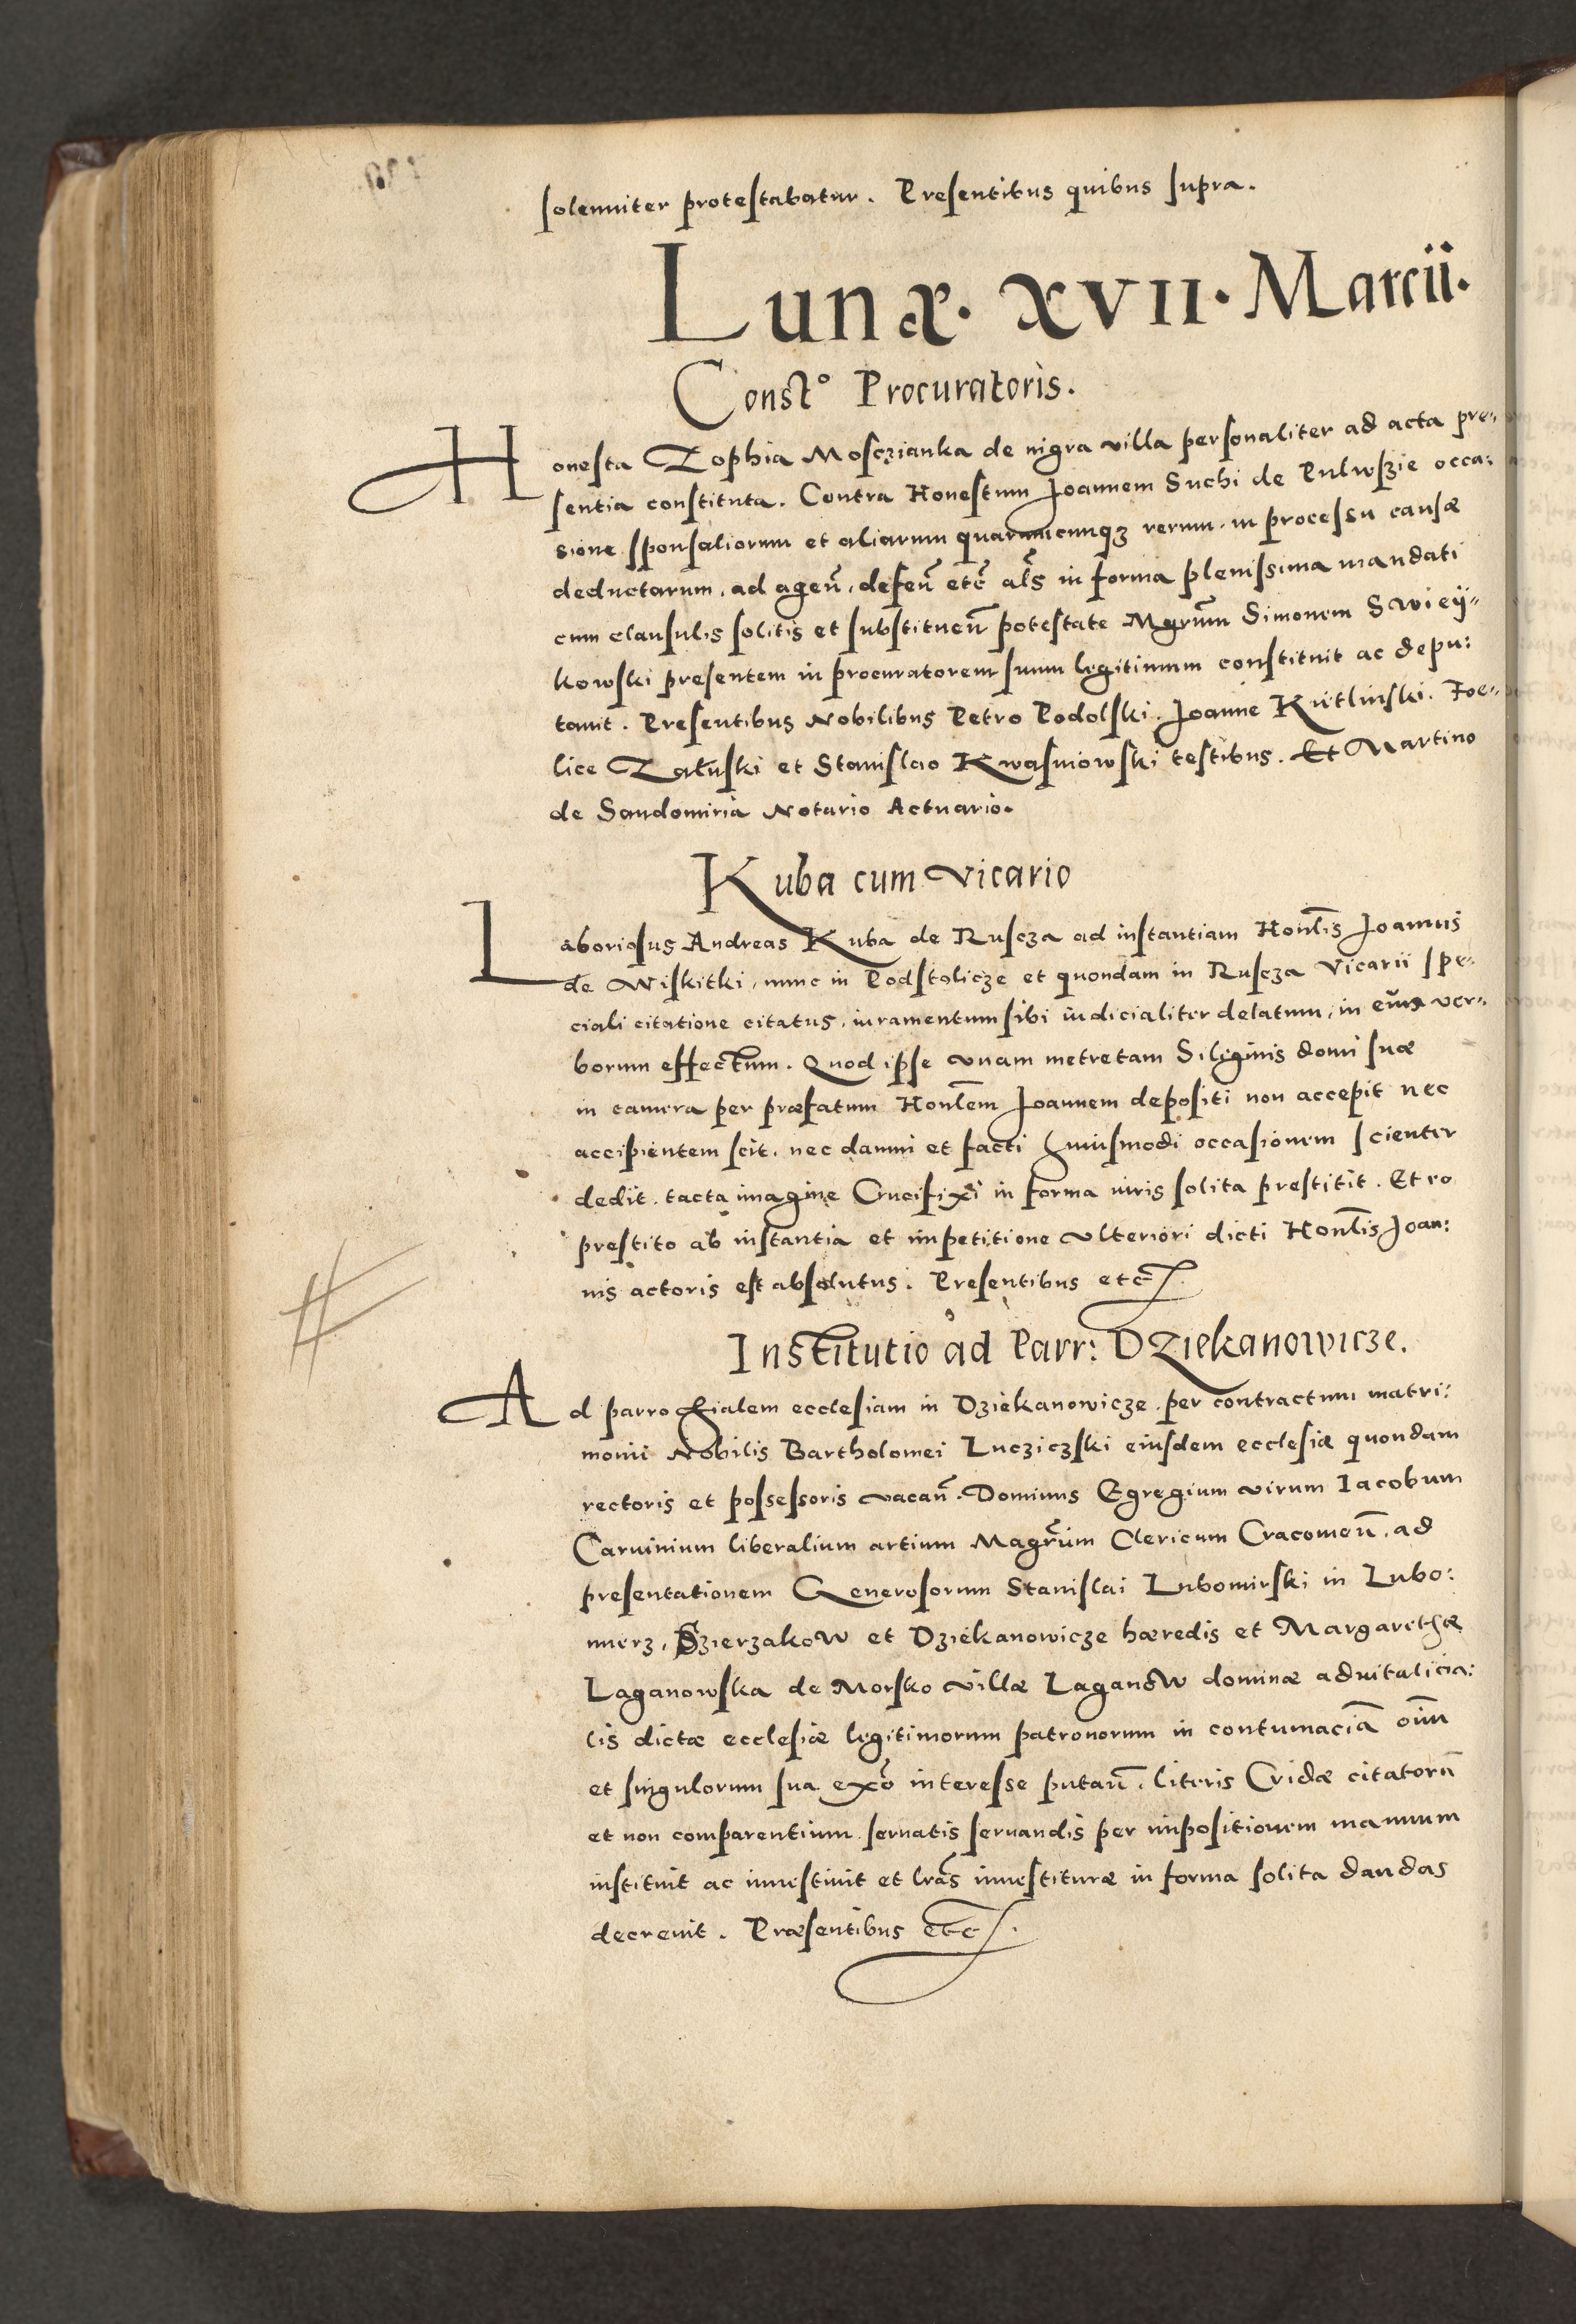 solenniter protestabatur. Presentibus quibus supra.
Lunæ. XVII. Marcii.
Const° Procuratoris.
Honesta Zophia Mosczianka de nigra villa personaliter ad acta pre„
sentia constituta. Contra Honestum Joannem Suchi de Pulwszie occa:
sione sponsaliorum et aliarum quarumcunqȝ rerum, in processu causæ
deductarum, ad ageñ, defeñ etc̃ al̃s in forma plenissima mandati
cum clausulis solitis et substitueñ potestate Mgrũm Simonem Swiey„
kowski presentem in procuratorem suum legitimum constituit ac depu:
tauit. Presentibus Nobilibus Petro Podolski. Joanne Kutlinski. Foe„
lice Zaluski et Stanislao Kwasniowski testibus. Et Martino
de Sandomiria Notario Actuario.
Kuba cum vicario
Laboriosus Andreas Kuba de Ruscza ad instantiam Honl̃is Joannis
de Wiskitki, nunc in Podstolicze et quondam in Ruscza Vicarii spe:
ciali citatione citatus, iuramentum sibi iudicialiter delatum, in eum ver„
borum effectum. Quod ipse vnam metretam Siliginis domi suæ
in camera per præfatum Honl̃em Joannem depositi non accepit nec
accipientem scit, nec damni et facti huiusmodi occasionem scienter
dedit, tacta imagine Crucifixi in forma iuris solita prestitit. Et eo
prestito ab instantia et impetitione vlteriori dicti Honl̃is Joan:
nis actoris est absolutus. Presentibus etc̃.
Institutio ad Parr: Dziekanowicze.
Ad parrochialem ecclesiam in Dziekanowicze, per contractum matri:
monii Nobilis Bartholomei Lucziczski eiusdem ecclesiæ quondam
rectoris et possessoris vacañ. Dominus Egregium virum Iacobum
Caruinium liberalium artium Magr̃um Clericum Cracouieñ, ad
presentationem Generosorum Stanislai Lubomirski in Lubo:
mierz, Dzierzakow et Dziekanowicze hæredis et Margarethæ
Laganowska de Morsko villæ Laganow dominæ aduitalicia:
lis dictæ ecclesiæ legitimorum patronorum in contumaciã oĩum
et singulorum sua ex õ interesse putañ, literis Cridæ citatorũ
et non comparentium seruatis seruandis per impositionem manuum
instituit ac inuestiuit et lrãs inuestituræ in forma solita dandas
decreuit. Præsentibus etc̃.